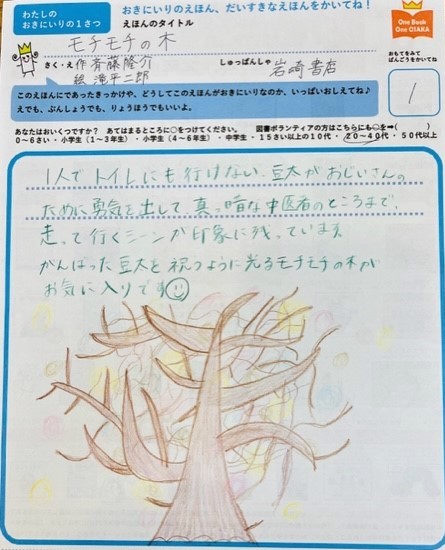 わたしの
おきにいりの1さつ
おきにいりのえほん、だいすきなえほんをかいてね!
えほんのタイトル
モチモチの木
One Book
One OSAKA
さく・え 作 斉藤隆介
絵 滝平二郎
しゅっぱんしゃ 岩崎書店
おもてをみて
ばんごうをかいてね
1
このえほんにであったきっかけや、どうしてこのえほんがおきにいりなのか、いっぱいおしえてね♪
えでも、ぶんしょうでも、りょうほうでもいいよ。
あなたはおいくつですか? あてはまるところに○をつけてください。 図書ボランティアの方はこちらにも○を➡( )
0〜6さい ・小学生(1〜3年生) ・小学生(4〜6年生) ・中学生 ・15さい以上の10代 ・20〜40代 ・50代以上
1人でトイレにも行けない、豆太がおじいさんの
ために勇気を出して、真っ暗な中医者のところまで、
走って行くシーンが印象に残っています。
がんばった豆太を祝うように光るモチモチの木が
お気に入りです